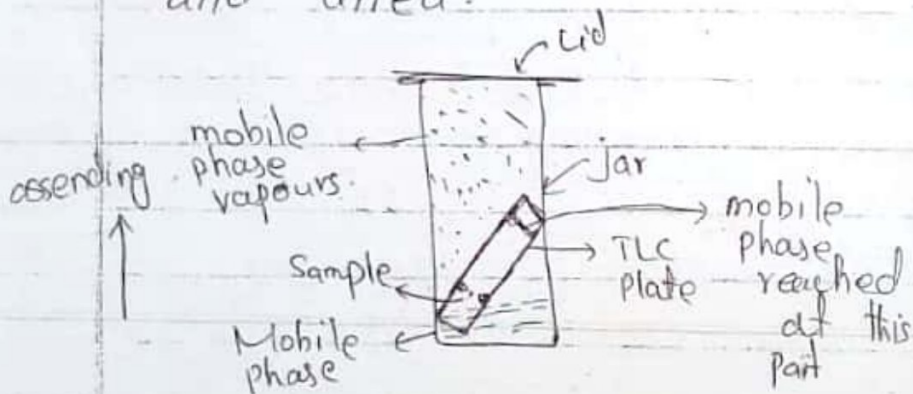 and dried.
Lid
mobile
phase
vapours.
assending
jar
mobile
phase
reached
at this
part
TLC
Plate
Sample
Mobile
phase